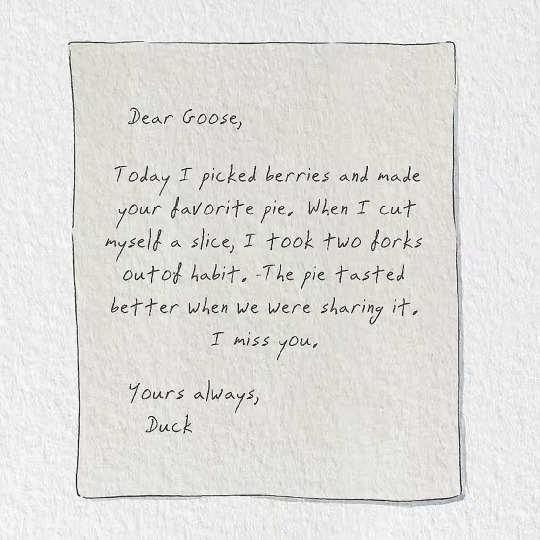 Dear Goose,
Today I picked berries and made
your favorite pie. When I cut
myself a slice, I took two forks
out of habit. The pie tasted
better when we were sharing it.
I miss you.
Yours always,
Duck